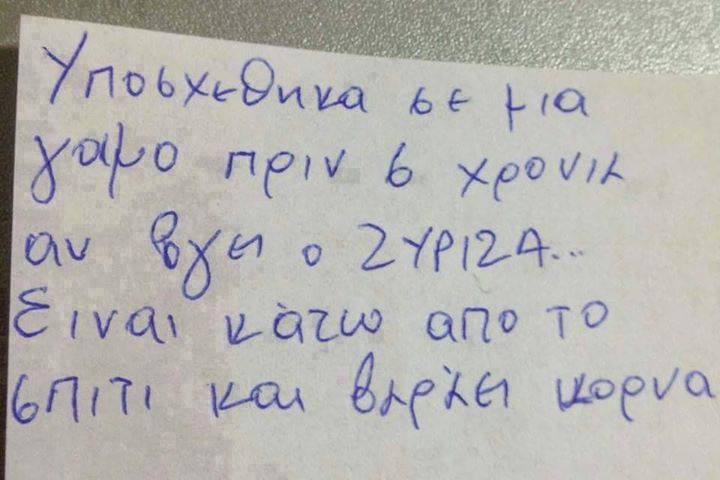 Υποσχεθηκα σε μια
γαμο πριν 6 χρονια
αν βγει ο ΣΥΡΙΖΑ...
Ειναι κάτω απο το
σπιτι και βαράει κορνα